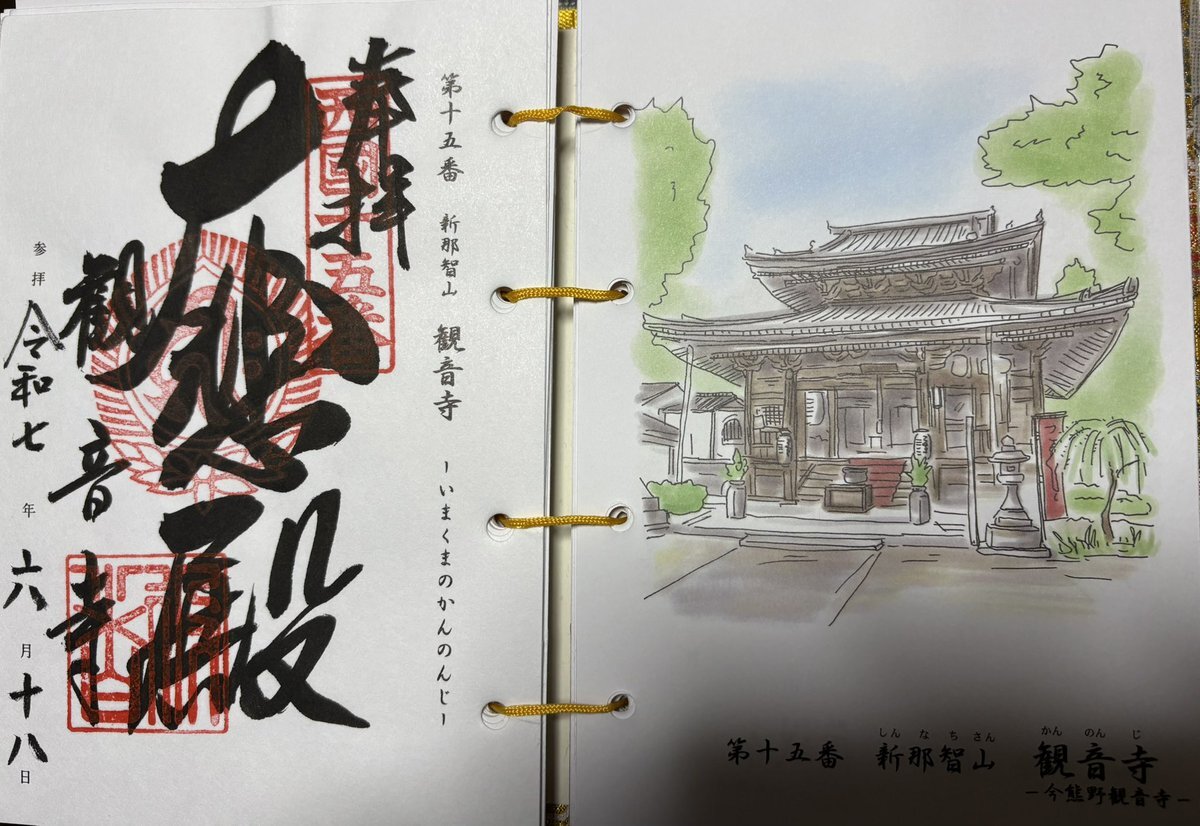 第十五番 新那智山 観音寺 -いまくまのかんのんじ-
奉拝
西國十五番
大悲殿
観音寺
参拝 令和七年六月十八日
しんなちさん かんのんじ
第十五番 新那智山 観音寺
-今熊野観音寺-